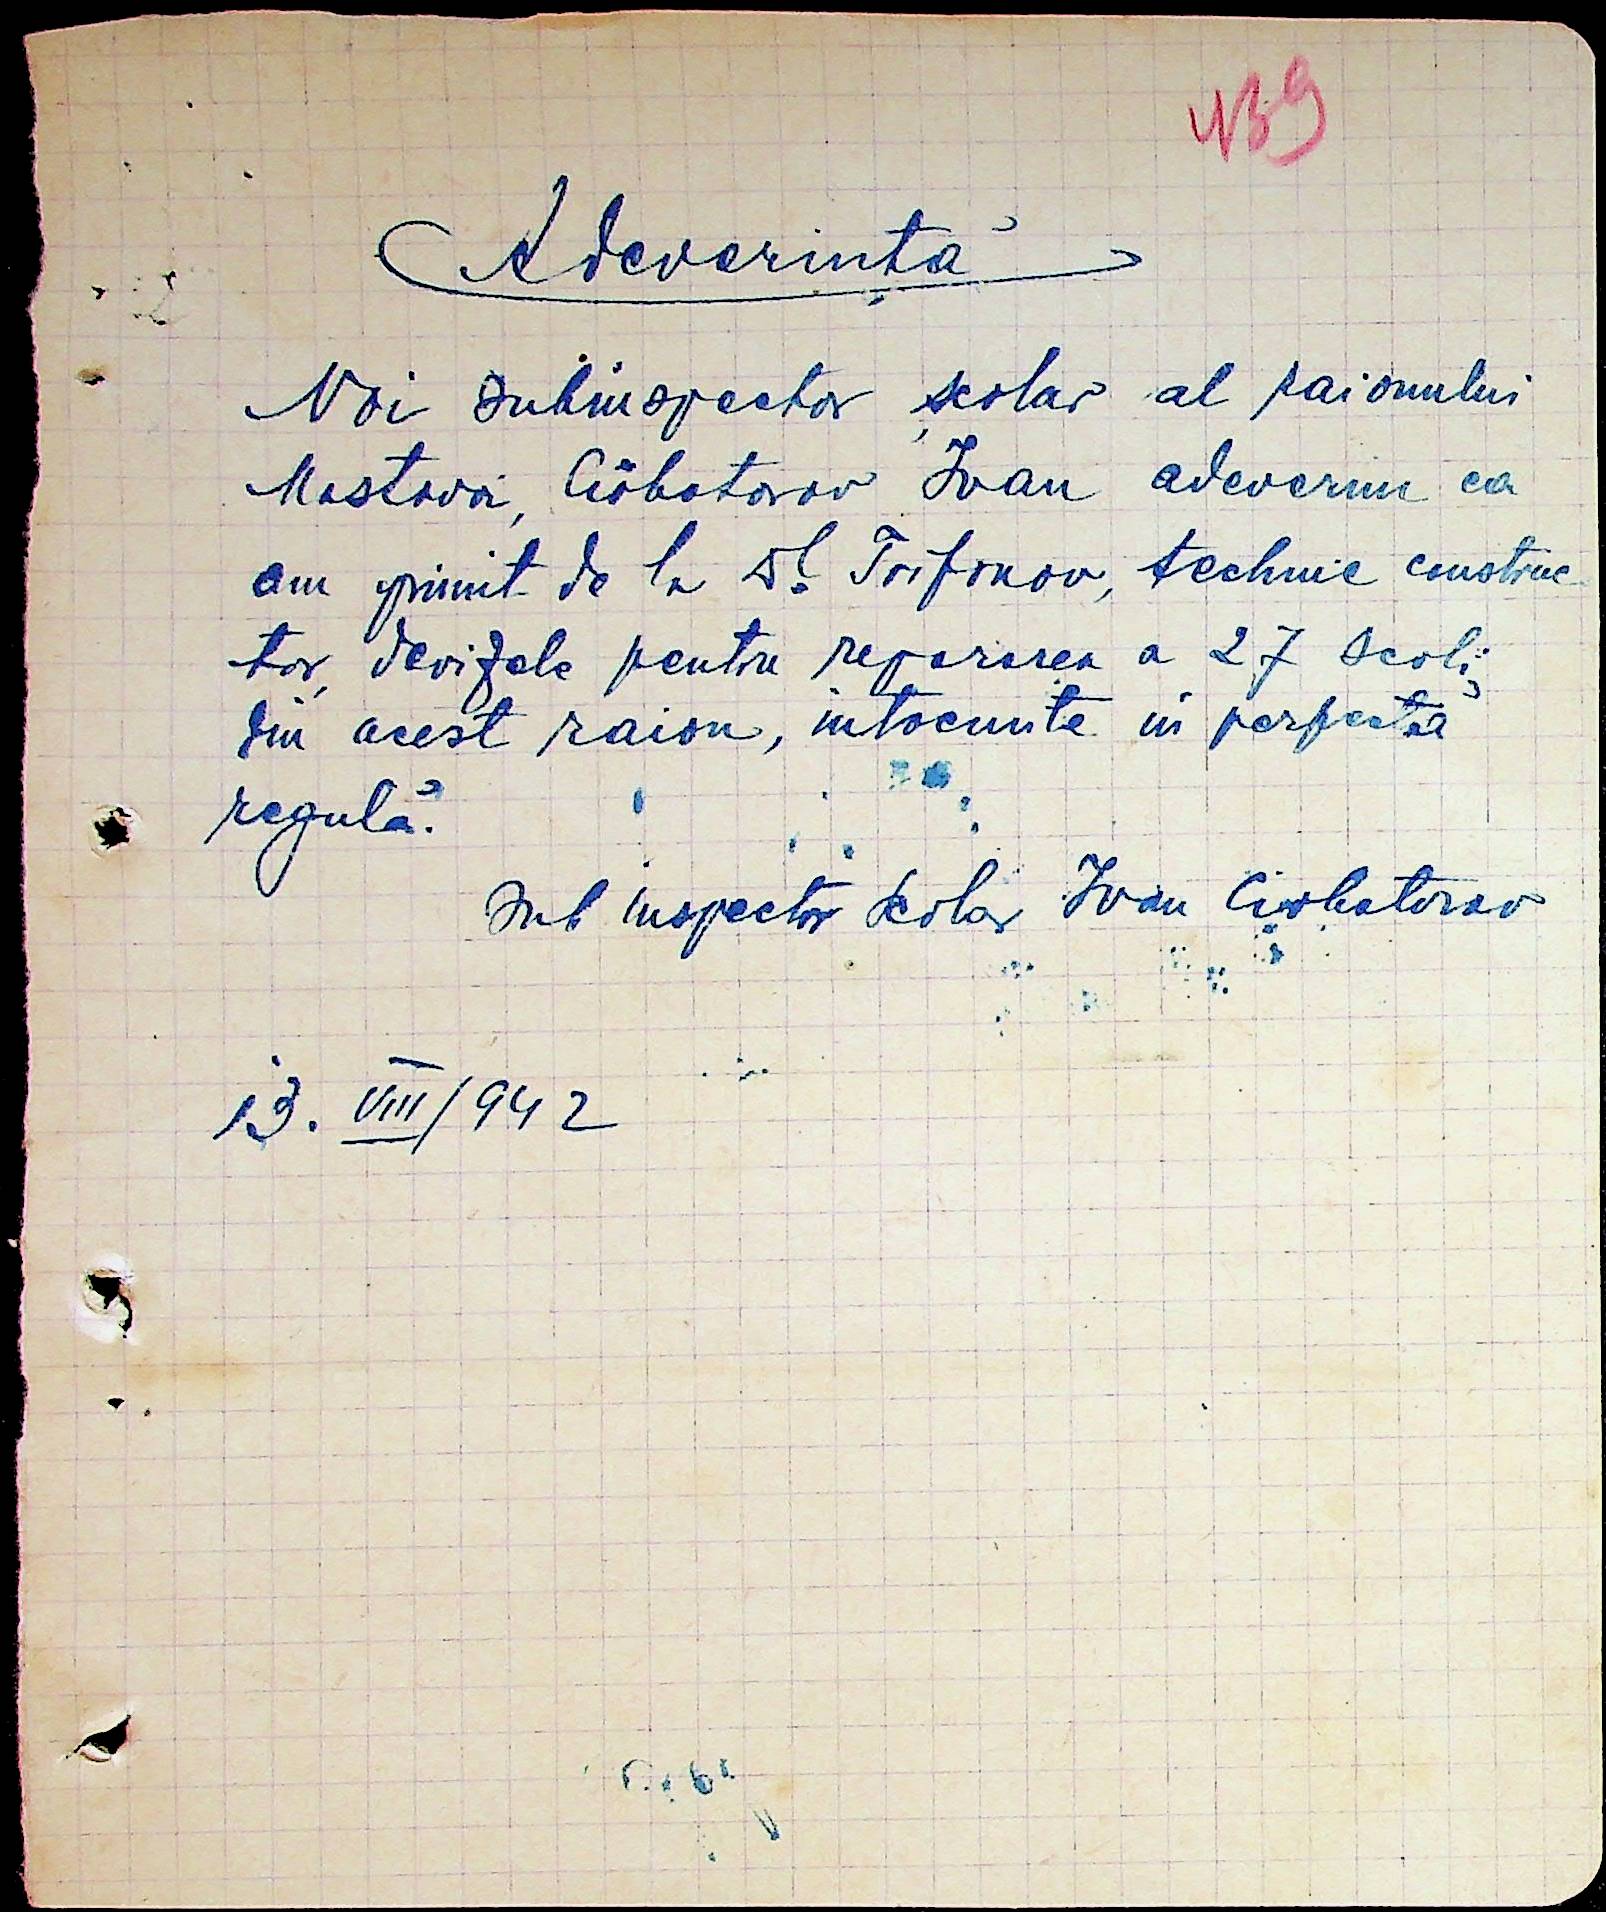 439
Adeverință
Noi subinspector școlar al raionului
Mostovoi, Ciobotarov Ivan adeverim ca
am primit de la Dl. Trifonov, technic construc-
tor, devizele pentru repararea a 27 scoli,
din acest raion, intocmite in perfectă
regulă.
Subinspector scolar Ivan Ciobotarov
13. VIII/942